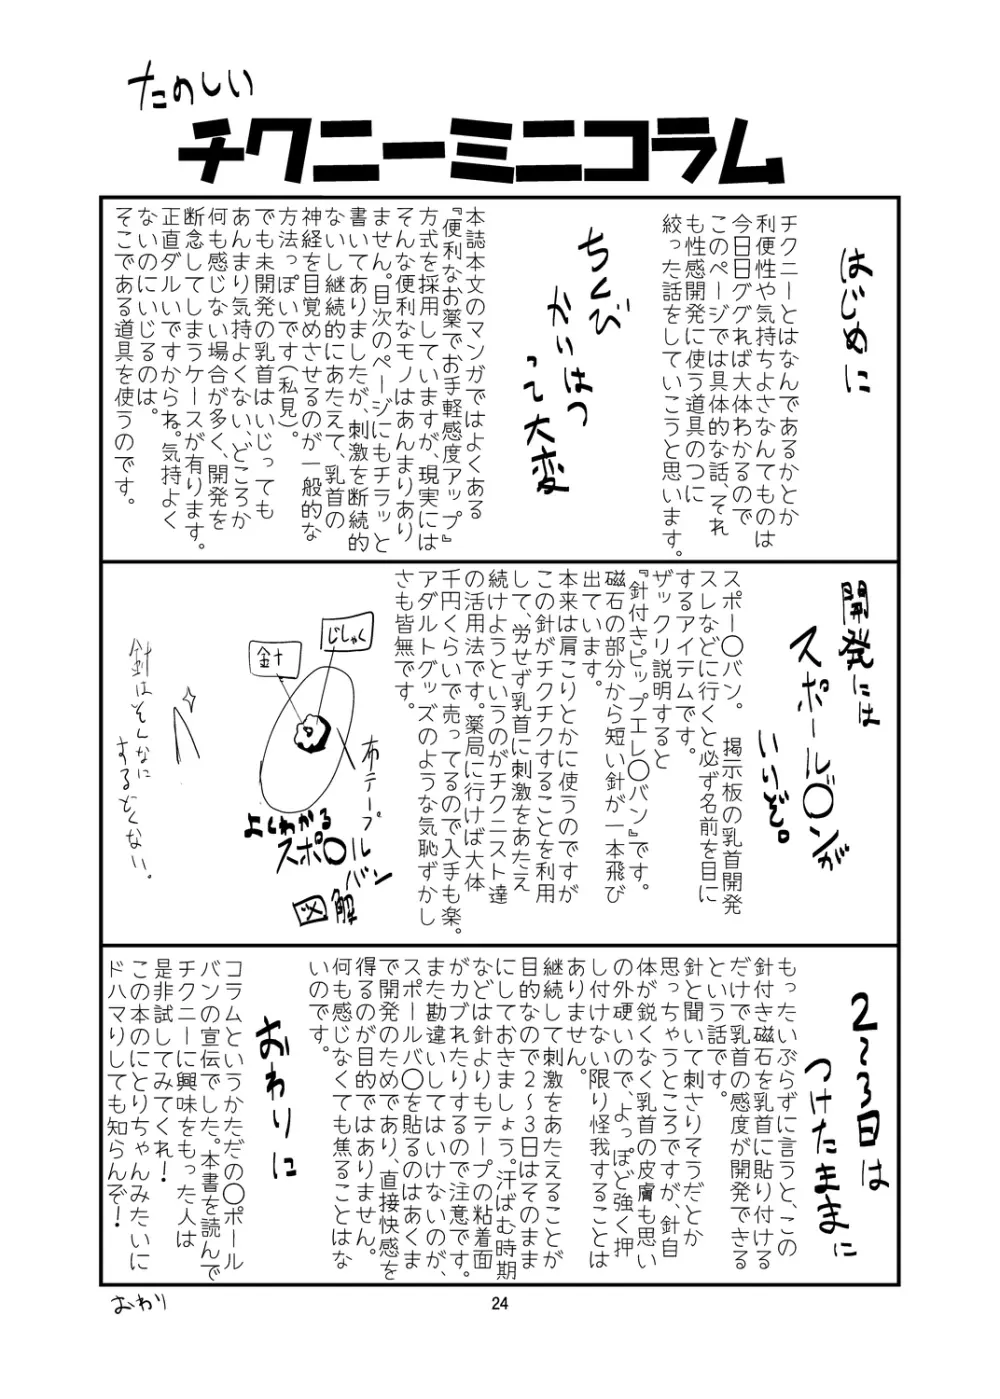 たのしい
チクニーミニコラム
はじめに
チクニーとはなんであるかとか
利便性や気持ちよさなんてものは
今日日ググれば大体わかるので
このページでは具体的な話、それ
も性感開発に使う道具のつに
絞った話をしていこうと思います。
ちくび
かいはつ
って大変
本誌本文のマンガではよくある
『便利なお薬でお手軽感度アップ』
方式を採用していますが、現実には
そんな便利なモノはあんまりあり
ません。目次のページにもチラッと
書いてありましたが、刺激を断続的
ないし継続的にあたえて、乳首の
神経を目覚めさせるのが一般的な
方法っぽいです(私見)。
でも未開発の乳首はいじっても
あんまり気持よくない、どころか
何も感じない場合が多く、開発を
断念してしまうケースが有ります。
正直ダルいですからね。気持よく
ないのにいじるのは。
そこである道具を使うのです。
開発には
スポール〇ンが
いいぞ。
スポー〇バン。 掲示板の乳首開発
スレなどに行くと必ず名前を目に
するアイテムです。
ザックリ説明すると
『針付きピップエレ〇バン』です。
磁石の部分から短い針が一本飛び
出ています。
本来は肩こりとかに使うのですが
この針がチクチクすることを利用
して、労せず乳首に刺激をあたえ
続けようというのがチクニスト達
の活用法です。薬局に行けば大体
千円くらいで売ってるので入手も楽。
アダルトグッズのような気恥ずかし
さも皆無です。
じしゃく
針
布テープ
よくわかる
スポ〇ル
バン
図解
針はそんなに
するどくない。
2〜3日は
つけたままに
もったいぶらずに言うと、この
針付き磁石を乳首に貼り付ける
だけで乳首の感度が開発できる
という話です。
針と聞いて刺さりそうだとか
思っちゃうところですが、針自
体が鋭くなく乳首の皮膚も思い
の外硬いので、よっぽど強く押
し付けない限り怪我することは
ありません。
継続して刺激をあたえることが
目的なので2〜3日はそのまま
にしておきましょう。汗ばむ時期
などは針よりもテープの粘着面
がカブれたりするので注意です。
また勘違いしてはいけないのが、
スポールバ〇を貼るのはあくま
で開発のためであり、直接快感を
得るのが目的ではありません。
何も感じなくても焦ることはな
いのです。
おわりに
コラムというかただの〇ポール
バンの宣伝でした。本書を読んで
チクニーに興味をもった人は
是非試してみてくれ！
この本のにとりちゃんみたいに
ドハマりしても知らんぞ！
おわり
24